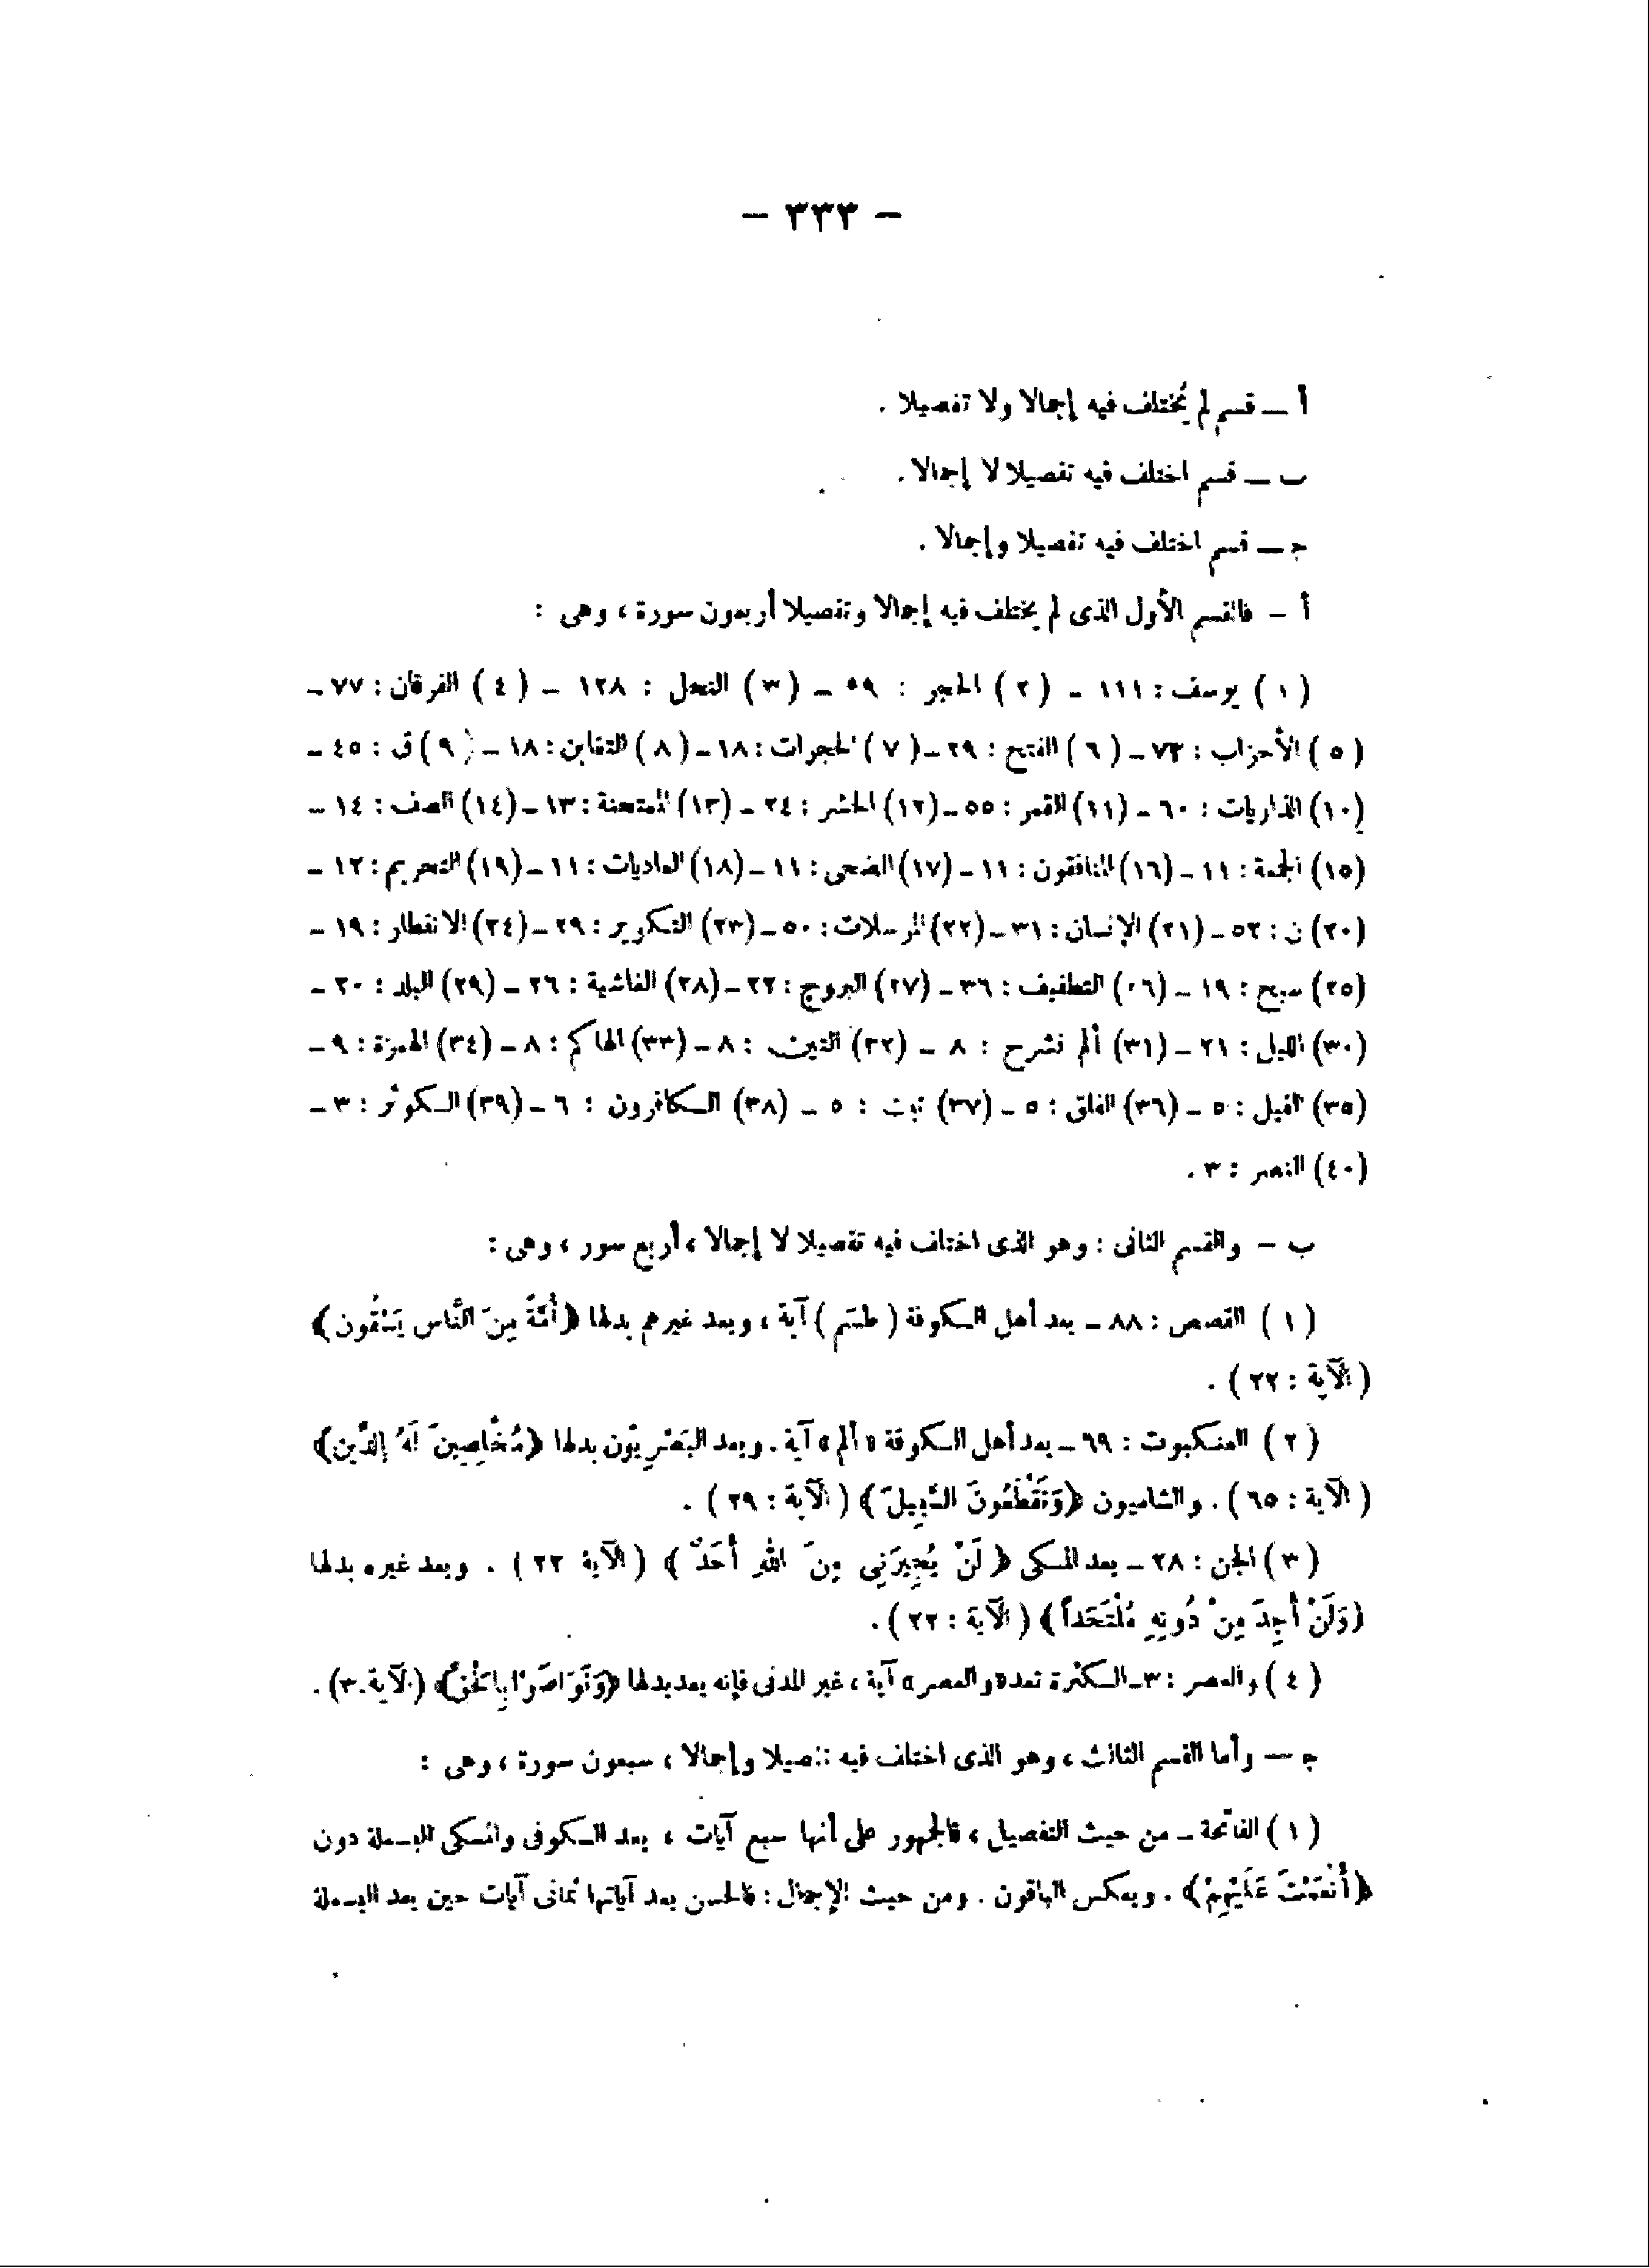 - ٣٣٣ -
أ ــ قسم لم يُختلف فيه إجمالا ولا تفصيلا .
ب ــ قسم اختلف فيه تفصيلا لا إجمالا .
جـ ــ قسم اختلف فيه تفصيلا وإجمالا .
أ - فالقسم الأول الذى لم يختلف فيه إجمالا وتفصيلا أربعون سورة ، وهى :
( ١ ) يوسف : ١١١ - ( ٢ ) الحجر : ٥٩ - ( ٣ ) النحل : ١٢٨ - ( ٤ ) الفرقان : ٧٧ -
( ٥ ) الأحزاب : ٧٣ - ( ٦ ) الفتح : ٢٩ - ( ٧ ) الحجرات : ١٨ - ( ٨ ) التغابن : ١٨ - ( ٩ ) ق : ٤٥ -
(١٠) الذاريات : ٦٠ - (١١) القمر : ٥٥ - (١٢) الحشر : ٢٤ - (١٣) الممتحنة : ١٣ - (١٤) الصف : ١٤ -
(١٥) الجمعة : ١١ - (١٦) المنافقون : ١١ - (١٧) الضحى : ١١ - (١٨) العاديات : ١١ - (١٩) التحريم : ١٢ -
(٢٠) ن : ٥٢ - (٢١) الإنسان : ٣١ - (٢٢) المرسلات : ٥٠ - (٢٣) التكوير : ٢٩ - (٢٤) الانفطار : ١٩ -
(٢٥) سبح : ١٩ - (٢٦) التطفيف : ٣٦ - (٢٧) البروج : ٢٢ - (٢٨) الغاشية : ٢٦ - (٢٩) البلد : ٢٠ -
(٣٠) الليل : ٢١ - (٣١) ألم نشرح : ٨ - (٣٢) التين : ٨ - (٣٣) الهاكم : ٨ - (٣٤) الهمزة : ٩ -
(٣٥) الفيل : ٥ - (٣٦) الفلق : ٥ - (٣٧) تبت : ٥ - (٣٨) الكافرون : ٦ - (٣٩) الكوثر : ٣ -
(٤٠) النصر : ٣ .
ب - والقسم الثانى : وهو الذى اختلف فيه تفصيلا لا إجمالا ، أربع سور ، وهى :
( ١ ) القصص : ٨٨ - يعد أهل الكوفة ( طسَم ) آية ، ويعد غيرهم بدلها ﴿أُمَّةً مِنَ النَّاس يَسْقُون﴾
( الآية : ٢٢ ) .
( ٢ ) العنكبوت : ٦٩ - يعد أهل الكوفة « ألم » آية . ويعد البَصْرِيّون بدلها ﴿مُخْلِصِينَ لَهُ الدِّين﴾
( الآية : ٦٥ ) . والشاميون ﴿وَتَقْطَعُونَ السَّبِيلَ ﴾ ( الآية : ٢٩ ) .
( ٣ ) الجن : ٢٨ - يعد المكى ﴿ لَنْ يُجِيرَنِى مِنَ اللهِ أَحَدٌ ﴾ ( الآية ٢٢ ) . ويعد غيره بدلها
﴿وَلَنْ أَجِدَ مِنْ دُونِهِ مُلْتَحَداً ﴾ ( الآية : ٢٢ ) .
( ٤ ) والعصر : ٣ - الكثرة تعد « والعصر » آية ، غير المدنى فإنه يعد بدلها ﴿وَتَوَاصَوْا بِالْحَقّ﴾ (الآية ٣) .
جـ ــ وأما القسم الثالث ، وهو الذى اختلف فيه تفصيلا وإجمالا ، سبعون سورة ، وهى :
( ١ ) الفاتحة - من حيث التفصيل ، فالجمهور على أنها سبع آيات ، يعد الكوفى والمكى البسملة دون
﴿أَنْعَمْتَ عَلَيْهِمْ﴾ . وبعكس الباقون . ومن حيث الإجمال : فالحسن يعد آياتها ثمانى آيات حين يعد البسملة